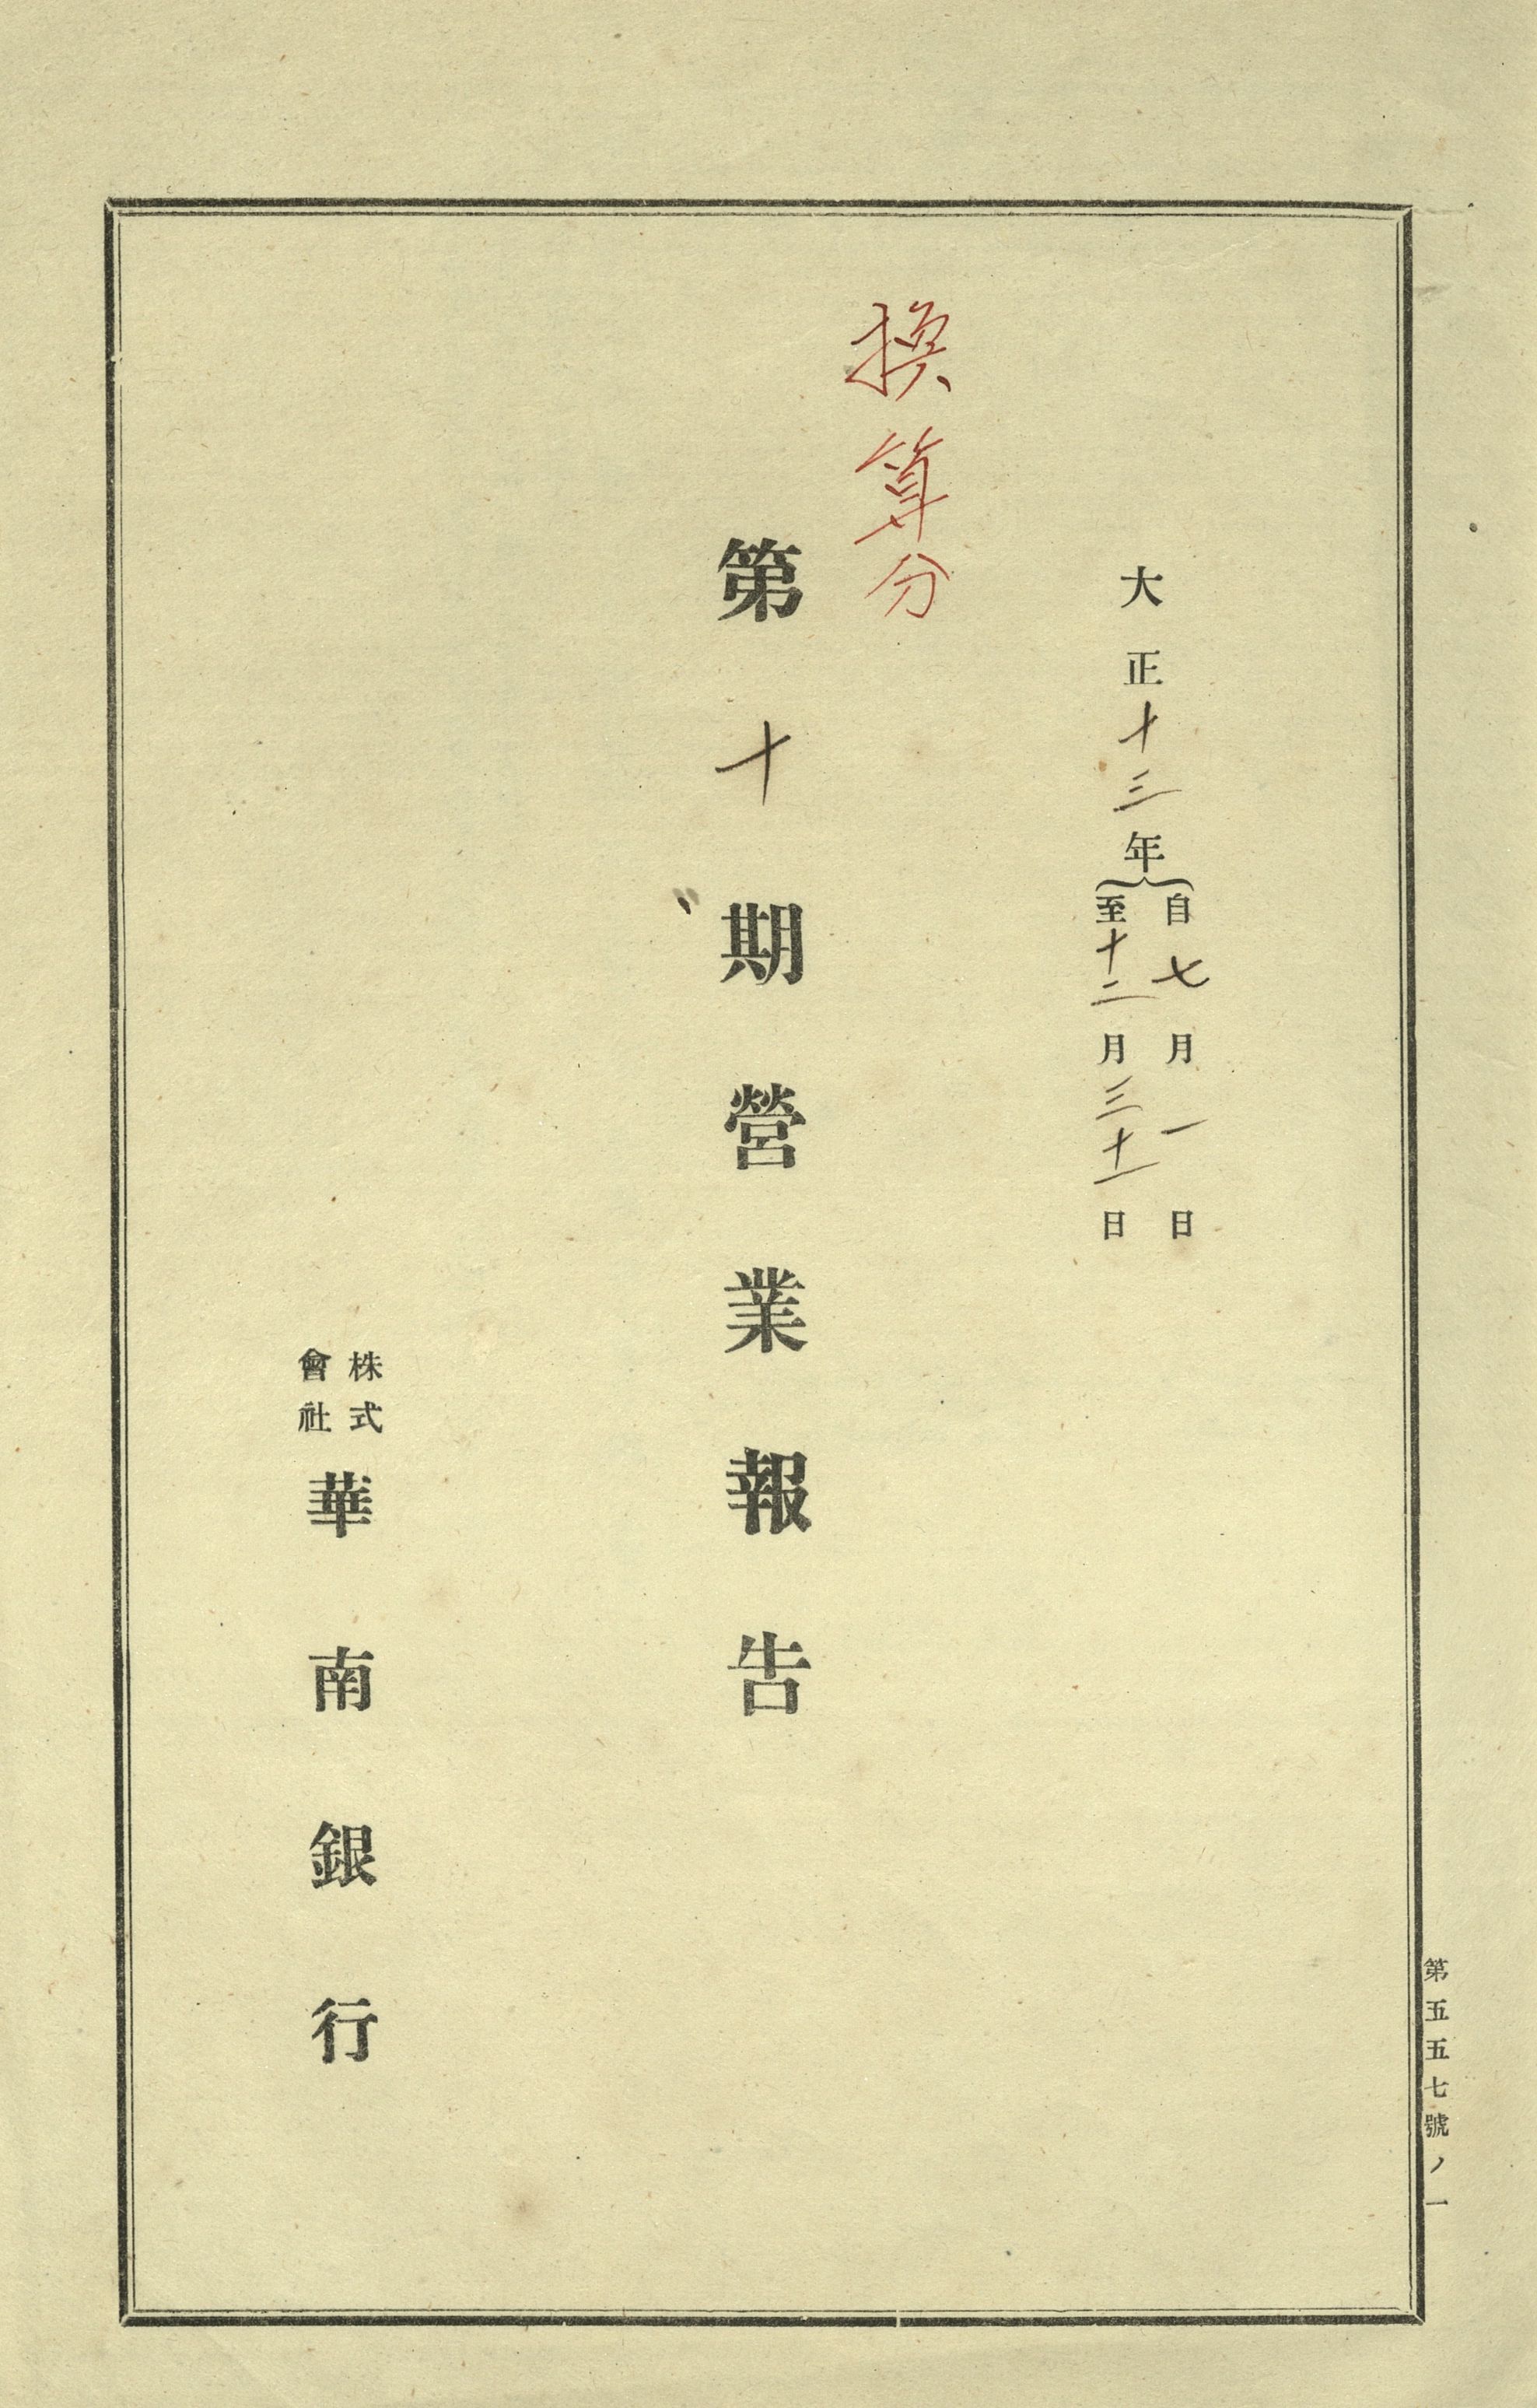 第五五七號ノ一
大正十三年
自七月一日
至十二月三十一日
換算分
第十期營業報告
株式
會社
華南銀行